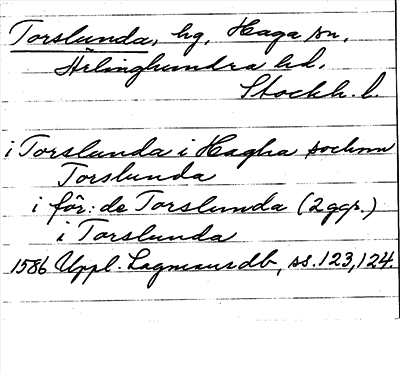 Torslunda, hg, Haga sn,
Ärlinghundra hd,
Stockh. l.
i Torslunda i Hagha sochnn
Torslunda
i för: de Torslunda (2 ggr.)
i Torslunda
1586 Uppl. Lagmansdb, ss. 123, 124.